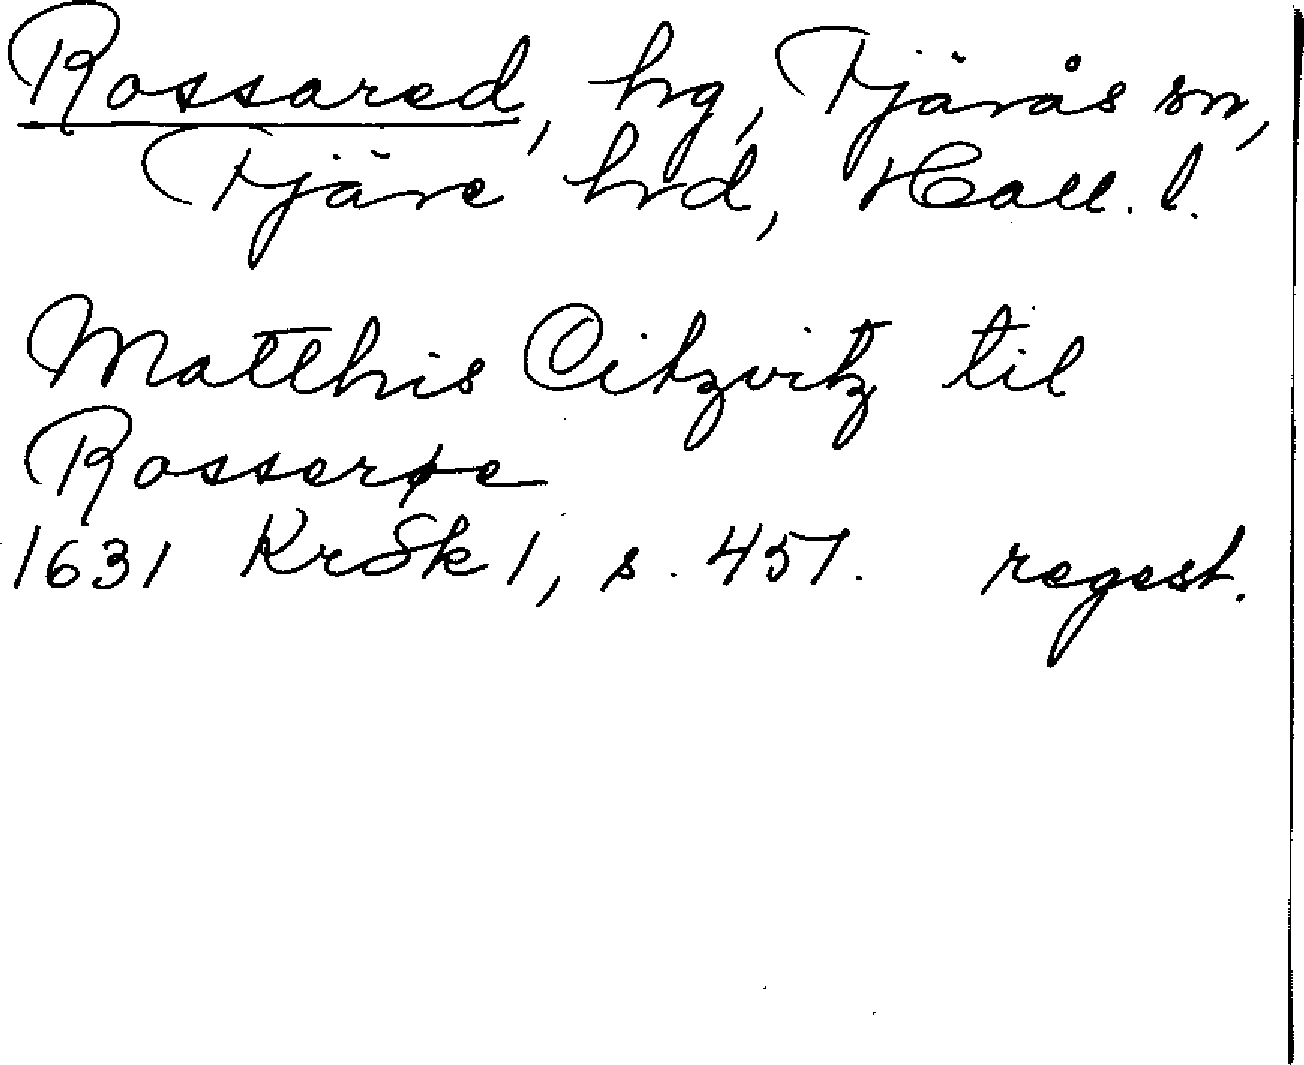 Rossared, hg, Tjärås sn,
Tjäre hrd, Hall. l.
Matthis Citzvitz til
Rosserøe
1631 KrSk 1, s. 457. regest.